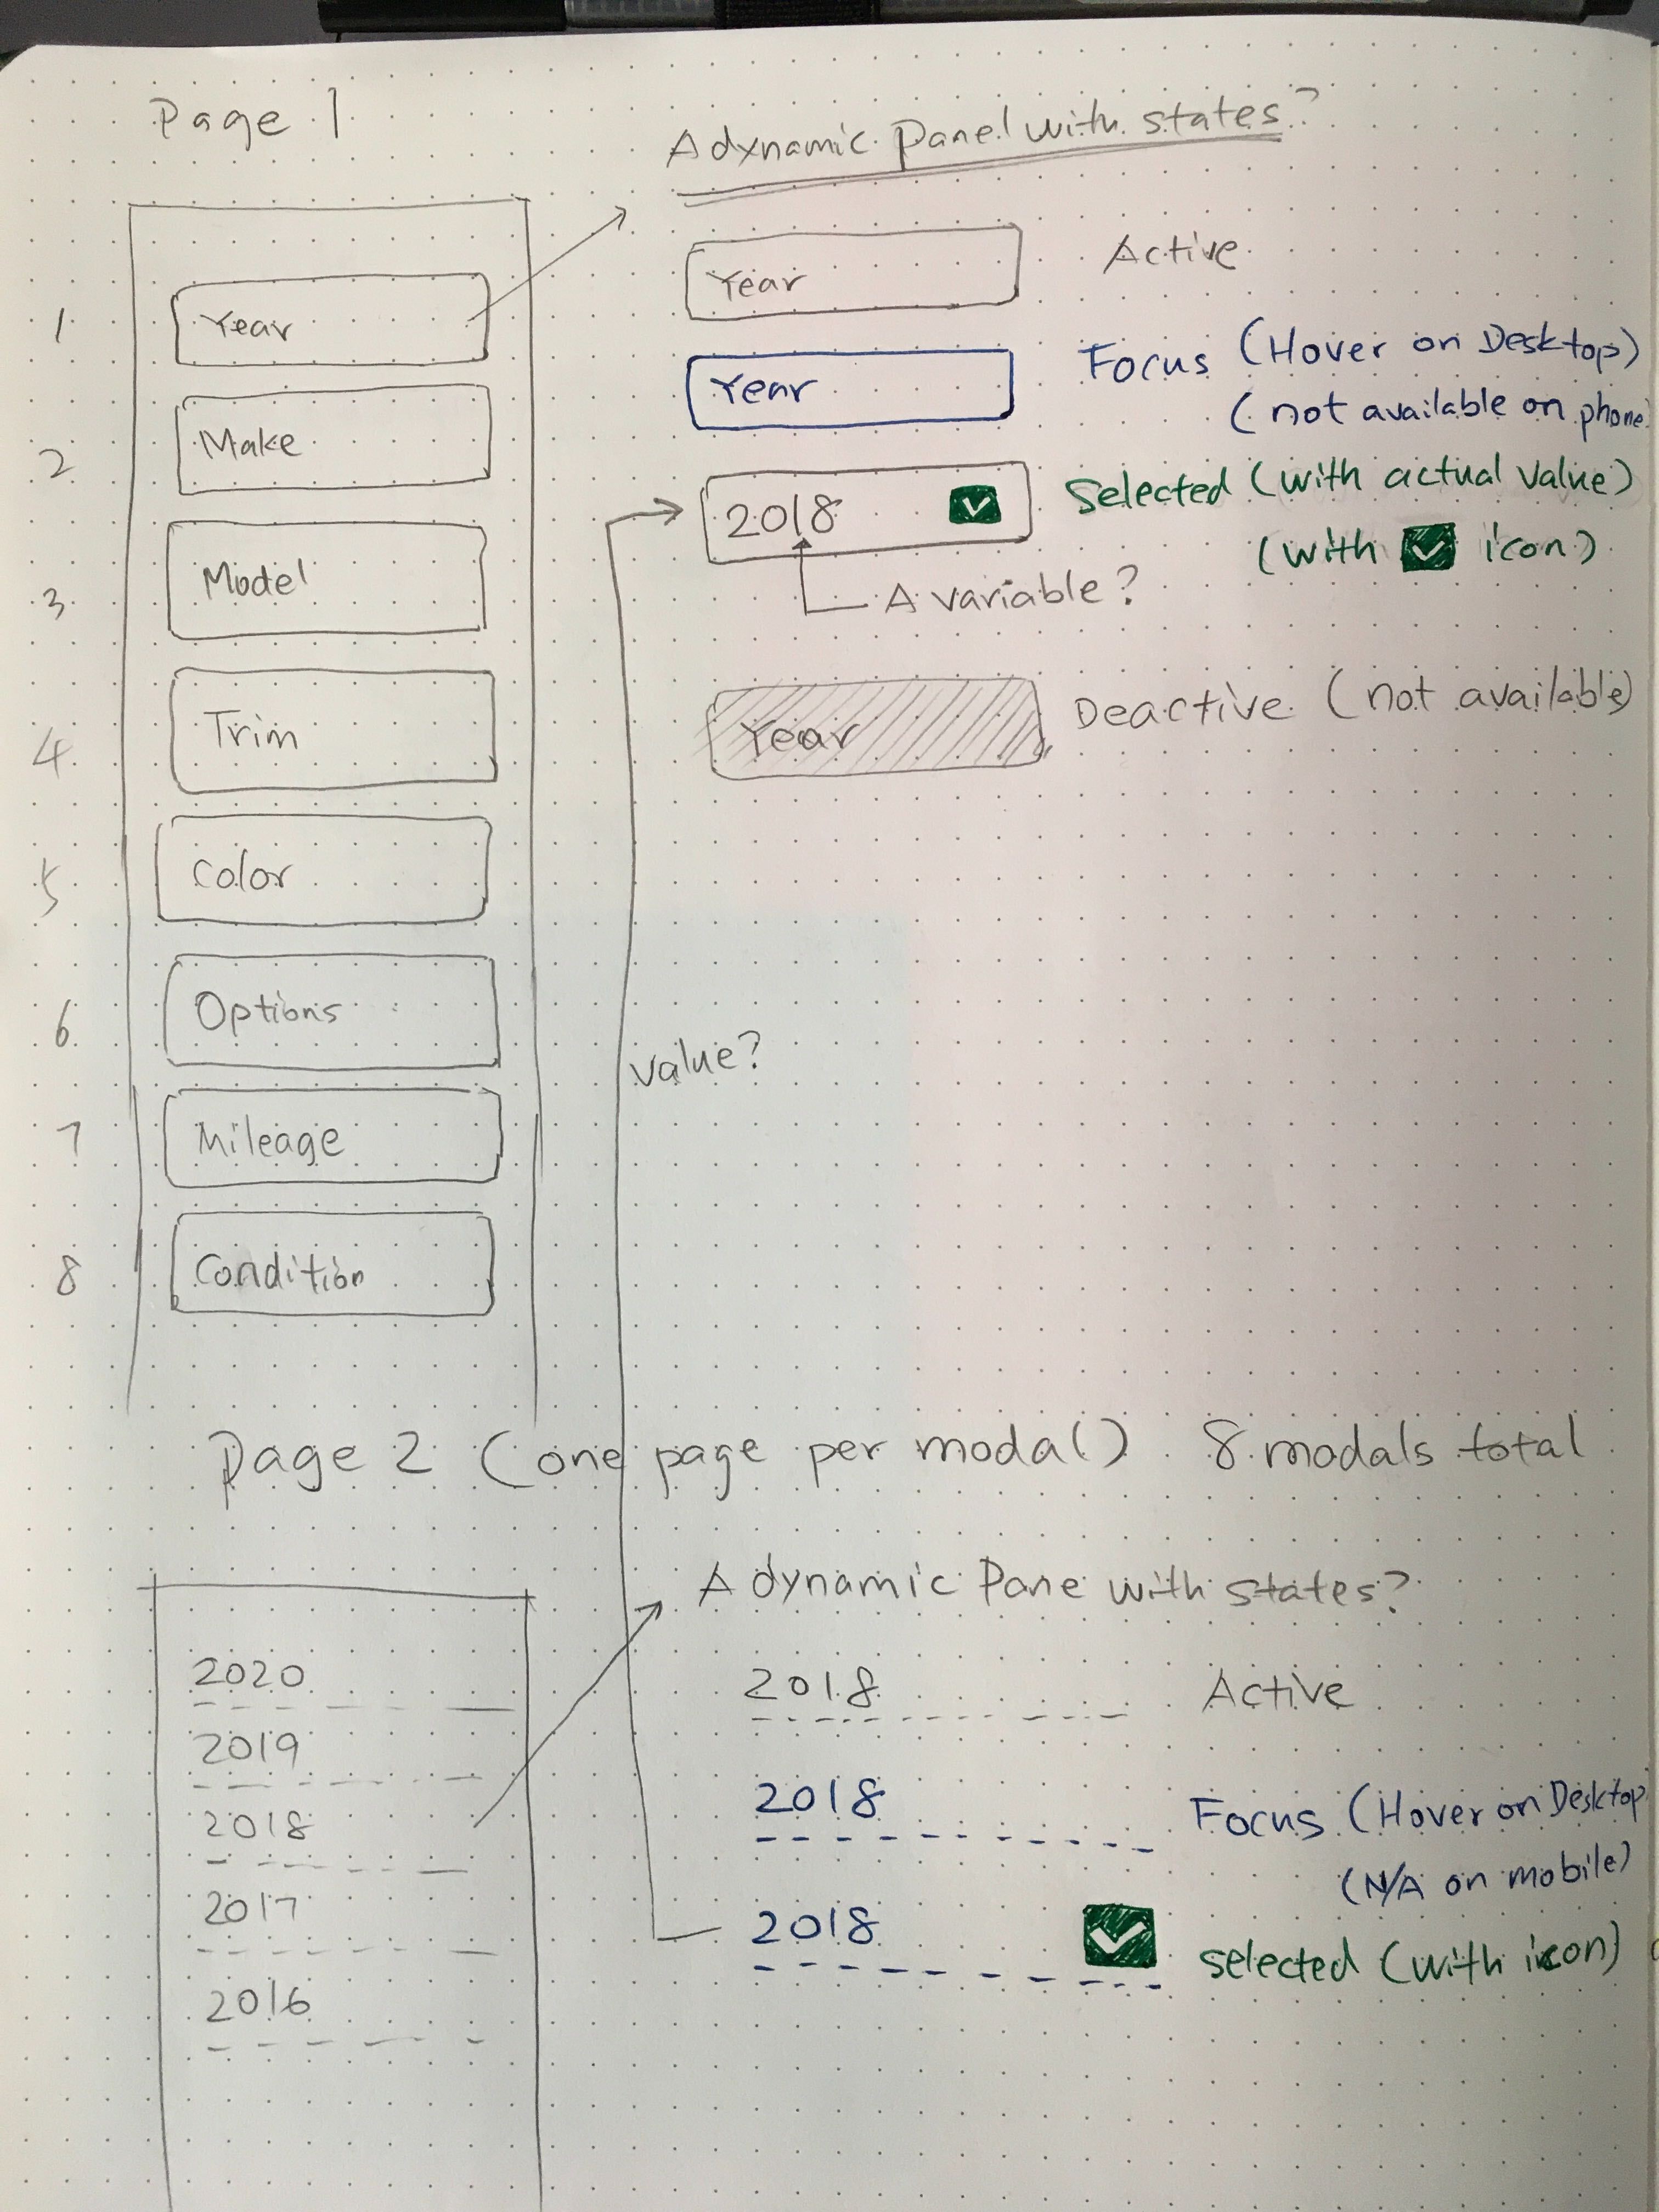 Page 1
A dynamic Panel with states?
1
Year
2
Make
3
Model
4
Trim
5
Color
6
Options
7
Mileage
8
Condition
Year
Active
Year
Focus (Hover on Desktop)
(not available on phone
2018
Selected (with actual value)
(with icon)
A variable?
Year
Deactive (not available)
value?
Page 2 (one page per modal) 8 modals total
2020
2019
2018
2017
2016
A dynamic Pane with states?
2018
Active
2018
Focus (Hover on Desktop
(N/A on mobile)
2018
selected (with icon)